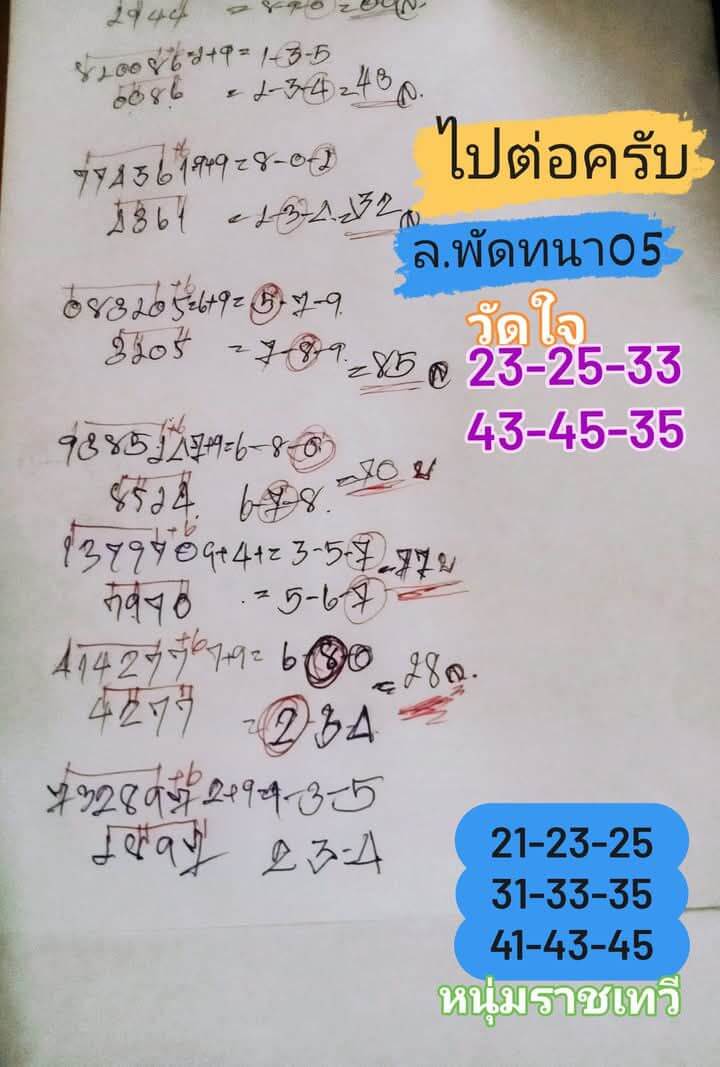 2944 = 890=
820086 2+9= 1-3-5
0086 = 2-3-4=43 ล.
774361 9+9=8-0-2
4361 =2-3-4=32 ล
+6
083205=6+9= 5-7-9
3205 = 7-8-9. =85 ล
+6
938524 7+9=6-8-0
8524. 6-7-8. =70 บ
+6
137970 9+4+= 3-5-7 =77บ
7970 = 5-6-7
+6
414277 7+9= 6 8 0 =28 ล.
4277 = 2-3-4
+6
732897 2+9=1-3-5
2897 2 3-4
ไปต่อครับ
ล.พัดทนา05
วัดใจ
23-25-33
43-45-35
21-23-25
31-33-35
41-43-45
หนุ่มราชเทวี